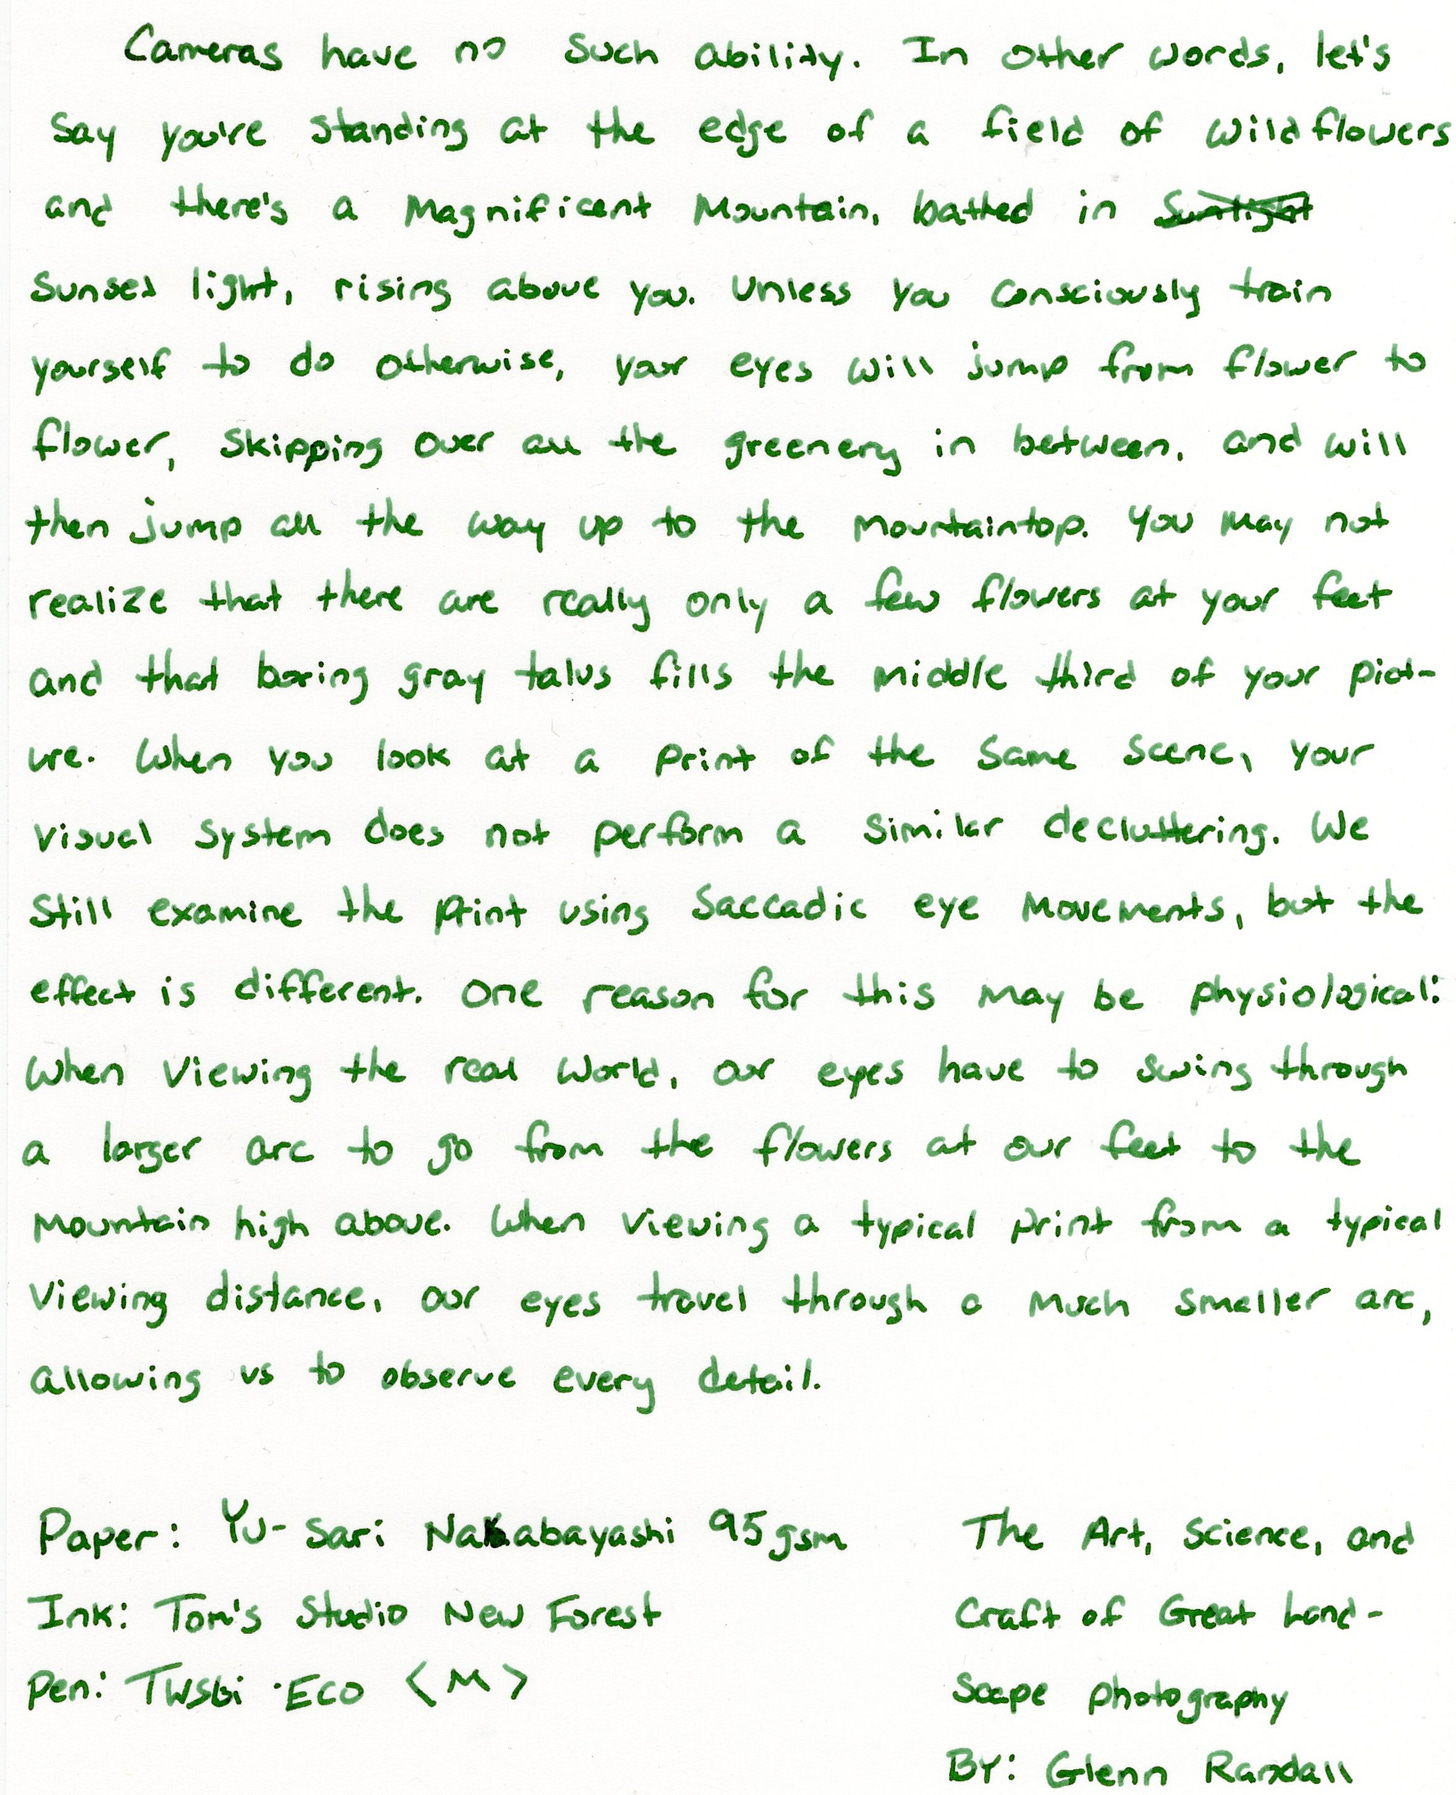 Cameras have no such ability. In other words, let's
say you're standing at the edge of a field of wildflowers
and there's a magnificent mountain, bathed in ~~sunlight~~
sunset light, rising above you. Unless you consciously train
yourself to do otherwise, your eyes will jump from flower to
flower, skipping over all the greenery in between, and will
then jump all the way up to the mountaintop. You may not
realize that there are really only a few flowers at your feet
and that boring gray talus fills the middle third of your pict-
ure. When you look at a print of the same scene, your
visual system does not perform a similar decluttering. We
still examine the print using saccadic eye movements, but the
effect is different. One reason for this may be physiological:
When viewing the real world, our eyes have to swing through
a larger arc to go from the flowers at our feet to the
mountain high above. When viewing a typical print from a typical
viewing distance, our eyes travel through a much smaller arc,
allowing us to observe every detail.
Paper: Yu-Sari Nakabayashi 95gsm
Ink: Tom's Studio New Forest
Pen: TWSBi ·Eco <M>
The Art, Science, and
Craft of Great Land-
scape photography
By: Glenn Randall